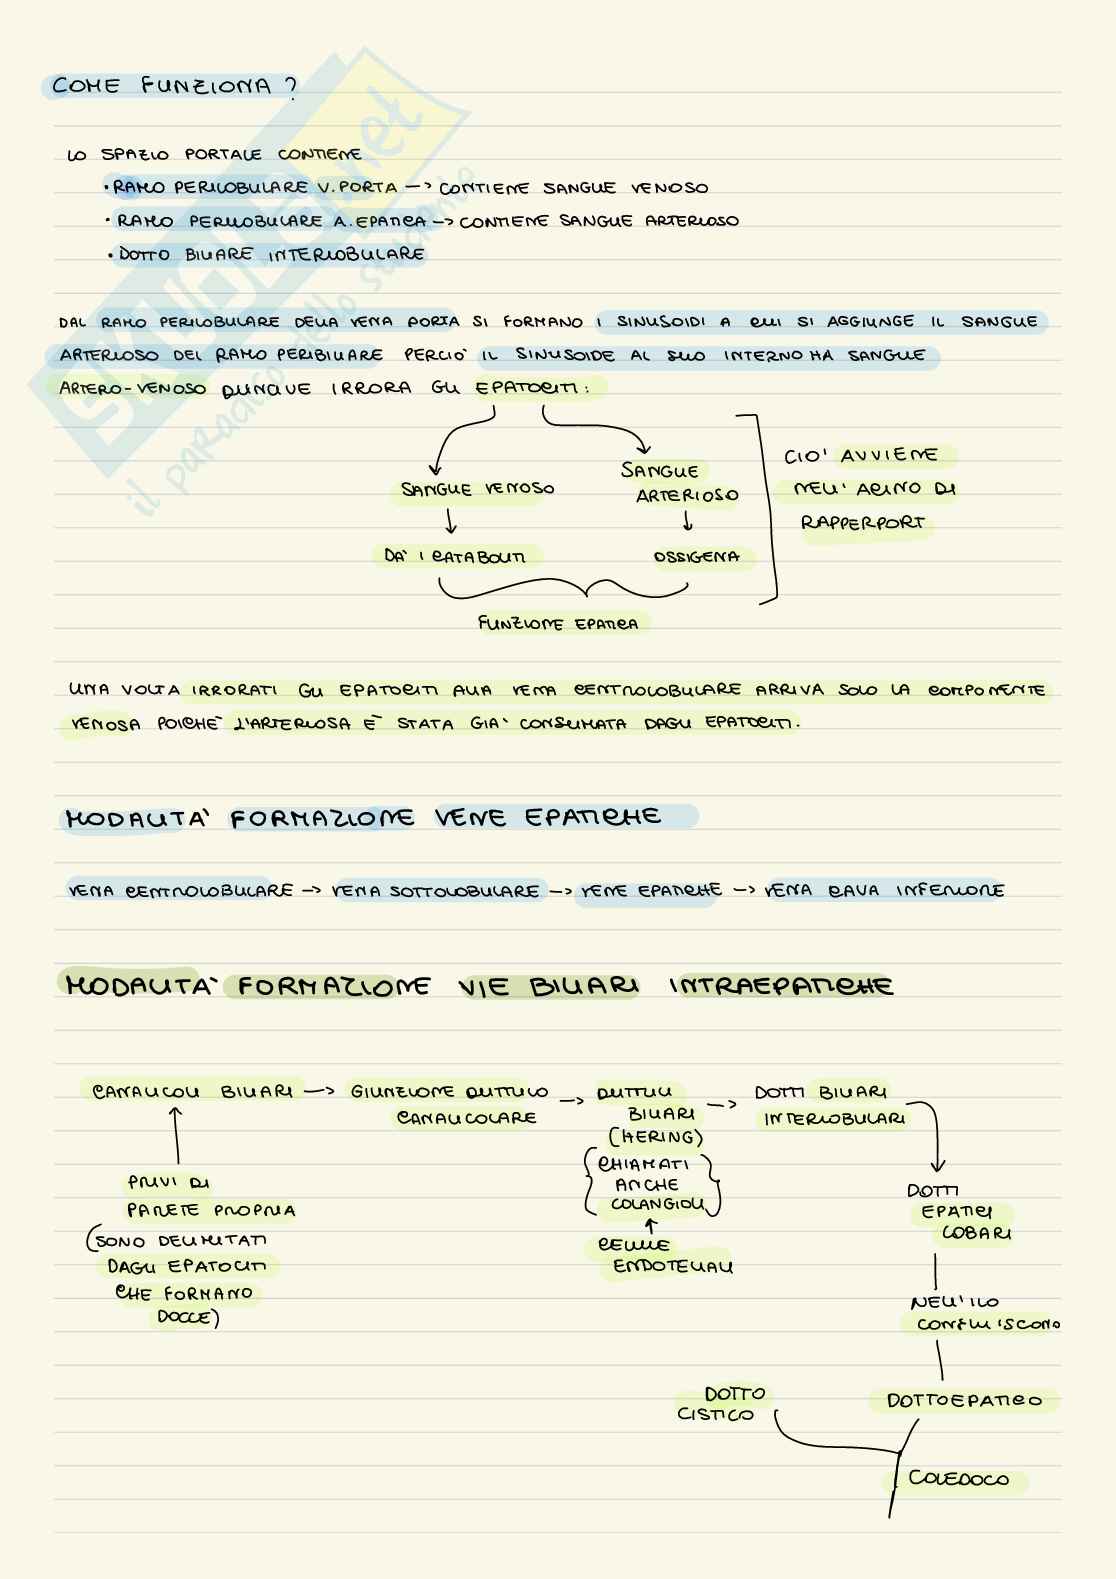 COME FUNZIONA?
LO SPAZIO PORTALE CONTIENE
• RAMO PERILOBULARE V. PORTA -> CONTIENE SANGUE VENOSO
• RAMO PERILOBULARE A. EPATICA -> CONTIENE SANGUE ARTERIOSO
• DOTTO BILIARE INTERLOBULARE
DAL RAMO PERILOBULARE DELLA VENA PORTA SI FORMANO I SINUSOIDI A CUI SI AGGIUNGE IL SANGUE
ARTERIOSO DEL RAMO PERIBILIARE PERCIO' IL SINUSOIDE AL SUO INTERNO HA SANGUE
ARTERO-VENOSO DUNQUE IRRORA GLI EPATOCITI:
SANGUE VENOSO
SANGUE
ARTERIOSO
DA' I CATABOLITI
OSSIGENA
FUNZIONE EPATICA
CIO' AVVIENE
NELL' ACINO DI
RAPPERPORT
UNA VOLTA IRRORATI GLI EPATOCITI ALLA VENA CENTROLOBULARE ARRIVA SOLO LA COMPONENTE
VENOSA POICHÈ L'ARTERIOSA È STATA GIA' CONSUMATA DAGLI EPATOCITI.
MODALITA' FORMAZIONE VENE EPATICHE
VENA CENTROLOBULARE -> VENA SOTTOLOBULARE -> VENE EPATICHE -> VENA CAVA INFERIORE
MODALITA' FORMAZIONE VIE BILIARI INTRAEPATICHE
CANALICOLI BILIARI -> GIUNZIONE DUTTULO
CANALICOLARE
-> DUTTULI
BILIARI
(HERING)
{CHIAMATI
ANCHE
COLANGIOLI}
CELLULE
ENDOTELIALI
-> DOTTI BILIARI
INTERLOBULARI
PRIVI DI
PARETE PROPRIA
(SONO DELIMITATI
DAGLI EPATOCITI
CHE FORMANO
DOCCE)
DOTTI
EPATICI
LOBARI
NELL'ILO
CONFLUISCONO
DOTTO EPATICO
DOTTO
CISTICO
COLEDOCO
SKUOLA.net
il paradiso dello studente